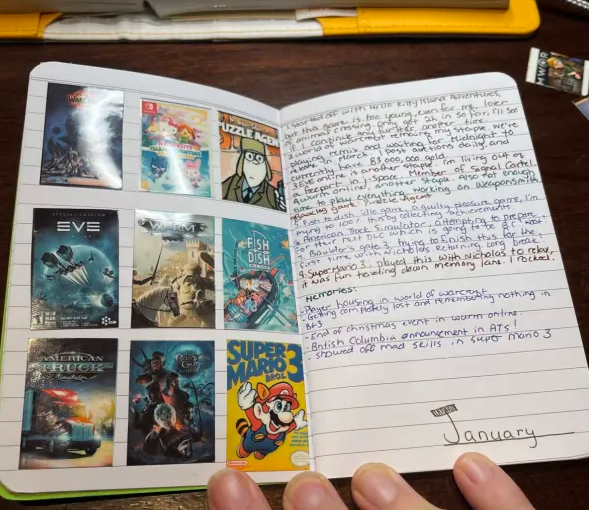 WARCRAFT
PUZZLE AGENT
SPECIAL EDITION
EVE
WURM
FISH
DISH
AMERICAN
TRUCK
Simulator
SUPER
MARIO 3
BROS.
Nintendo
I started off with Hello Kitty Island Adventures,
but this game is too young, even for me, lover
of animal crossing
if I continue any further another time.
2. World of warcraft remains my staple. we're
playing remix and waiting for midnight to
release in March. I post auctions daily, and
currently have 83,000,000 gold.
3. Eve online is another staple. I'm living out of
Freeport Member of Signal Cartel.
online, another staple. Also not enough
time to play everything. working on weaponsmith.
Puzzle Agent
Fish to dish, idle game, a guilty pleasure game, I'm
trying to 100% it by collecting achievements.
American Truck Simulator, attempting to prepare
for their next DLC which is going to be BC. Not
7. Baulder's gate 3, trying to finish this for the
first time with Nicholas. Returning long break.
9. Super Mario 3, played this with Nicholas to relax,
it was fun traveling down memory lane. I rocked.
Memories:
- Player housing in world of warcraft
- Getting completely lost and remembering nothing in
BG3
- End of christmas event in wurm online.
- British Columbia announcement in ATS!
- showed off mad skills in super mario 3
January